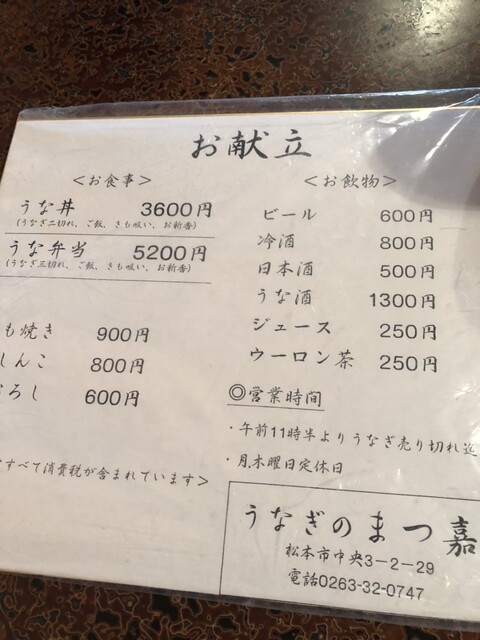 お献立
＜お食事＞
うな丼 3600円
(うなぎ二切れ、ご飯、きも吸い、お新香)
うな弁当 5200円
(うなぎ三切れ、ご飯、きも吸い、お新香)
も焼き 900円
しんこ 800円
ろし 600円
すべて消費税が含まれています＞
＜お飲物＞
ビール 600円
冷酒 800円
日本酒 500円
うな酒 1300円
ジュース 250円
ウーロン茶 250円
◎営業時間
・午前11時半よりうなぎ売り切れ迄
・月.木曜日定休日
うなぎのまつ嘉
松本市中央3－2－29
電話0263-32-0747